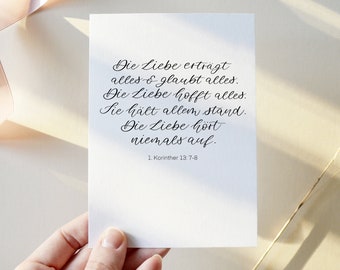 Die Liebe erträgt
alles & glaubt alles.
Die Liebe hofft alles.
Sie hält allem stand.
Die Liebe hört
niemals auf.
1. Korinther 13: 7-8